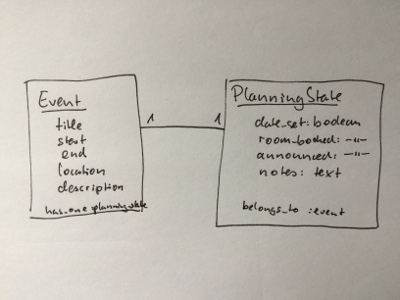 Event
title
start
end
location
description
has_one planning state
1
1
PlanningState
date_set: boolean
room_booked: -"-
announced: -"-
notes: text
belongs_to :event